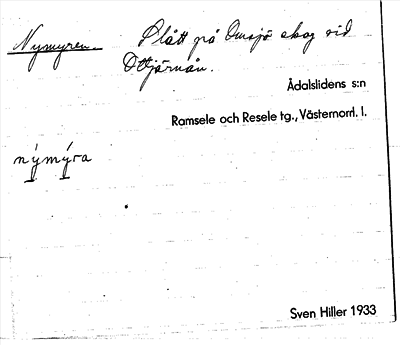 Nymyren. Slått på Omsjö skog vid
Ottjärnån.
Ådalslidens s:n
Ramsele och Resele tg., Västernorrl. l.
nýmýra
Sven Hiller 1933